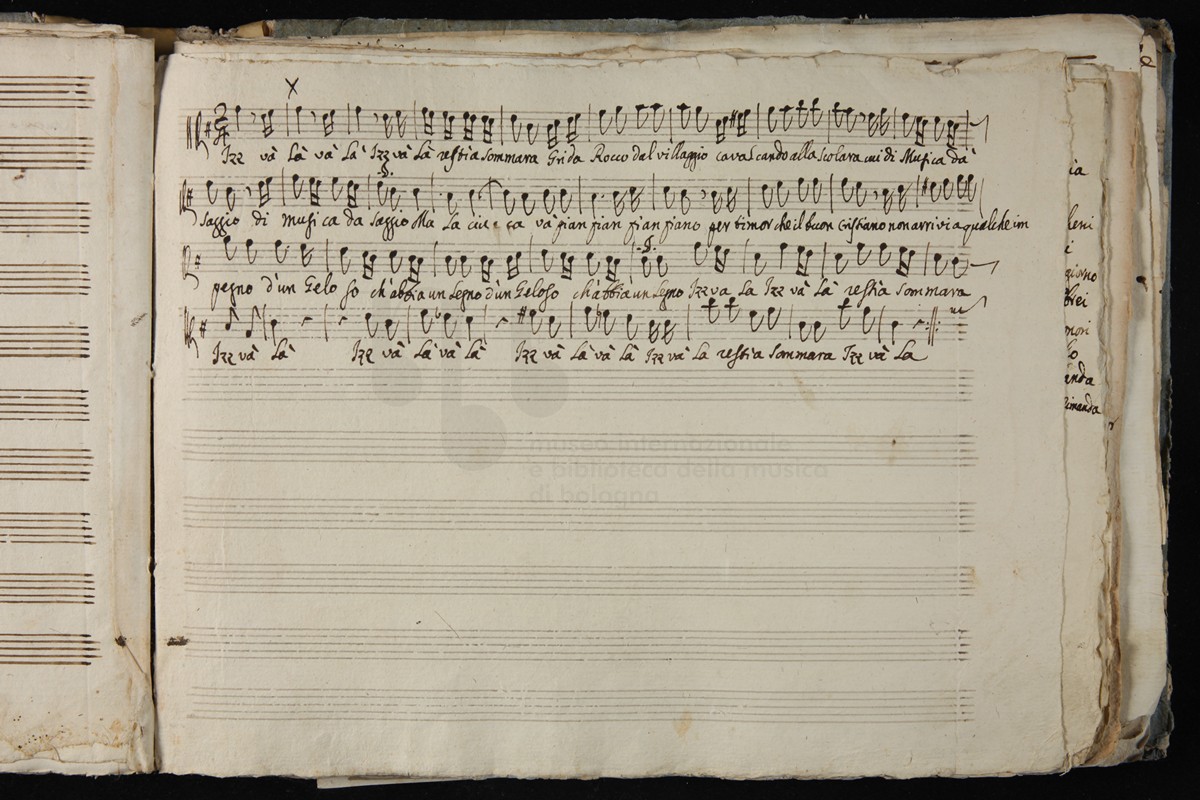 Izz và Là và Là Izz và Là restia sommara Grida Rocco dal villaggio cavalcando alla scolara cui di Musica dà
saggio di Musica da saggio Ma La và pian pian pian piano per timor che il buon Cristiano non arrivi a qualche im
pegno d'un Gelo so ch'abbia un Legno d'un Geloso ch'abbia un Legno Izz va La Izz và Là restia sommara
Izz và Là Izz và Là và Là Izz và Là và Là Izz và La restia sommara Izz và La
museo internazionale
e biblioteca della musica
di bologna